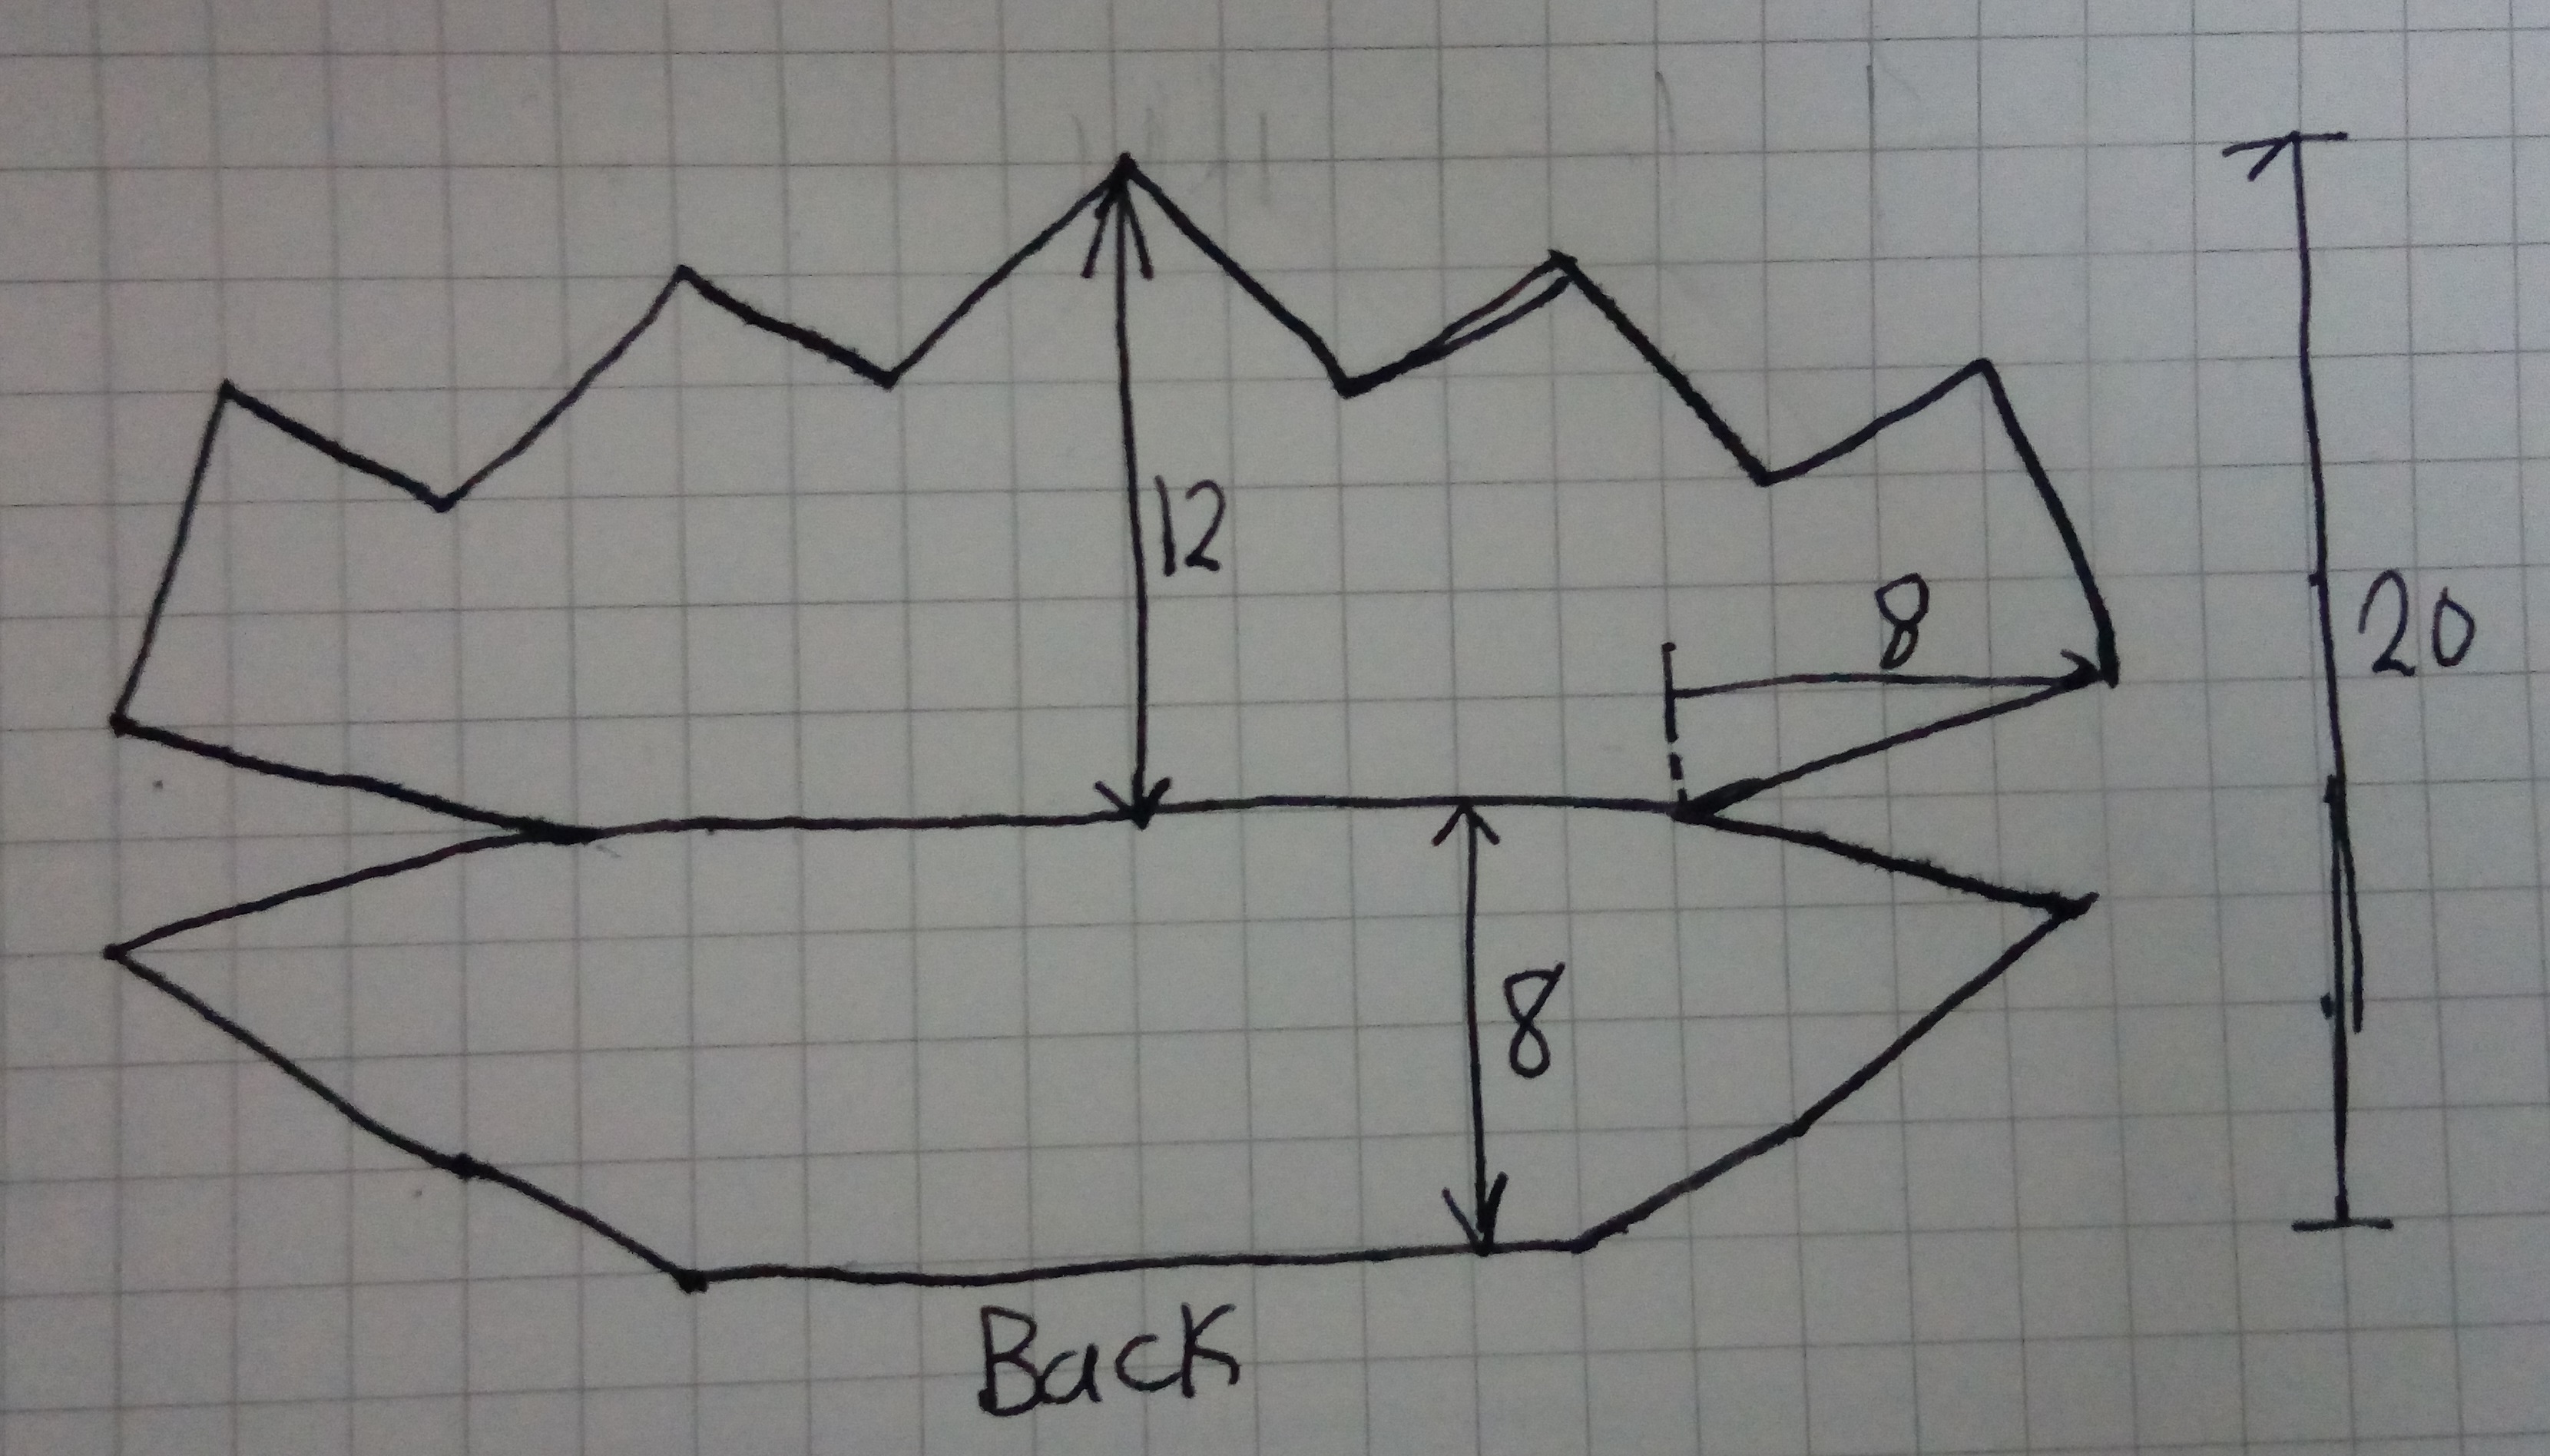 12
8
20
8
Back